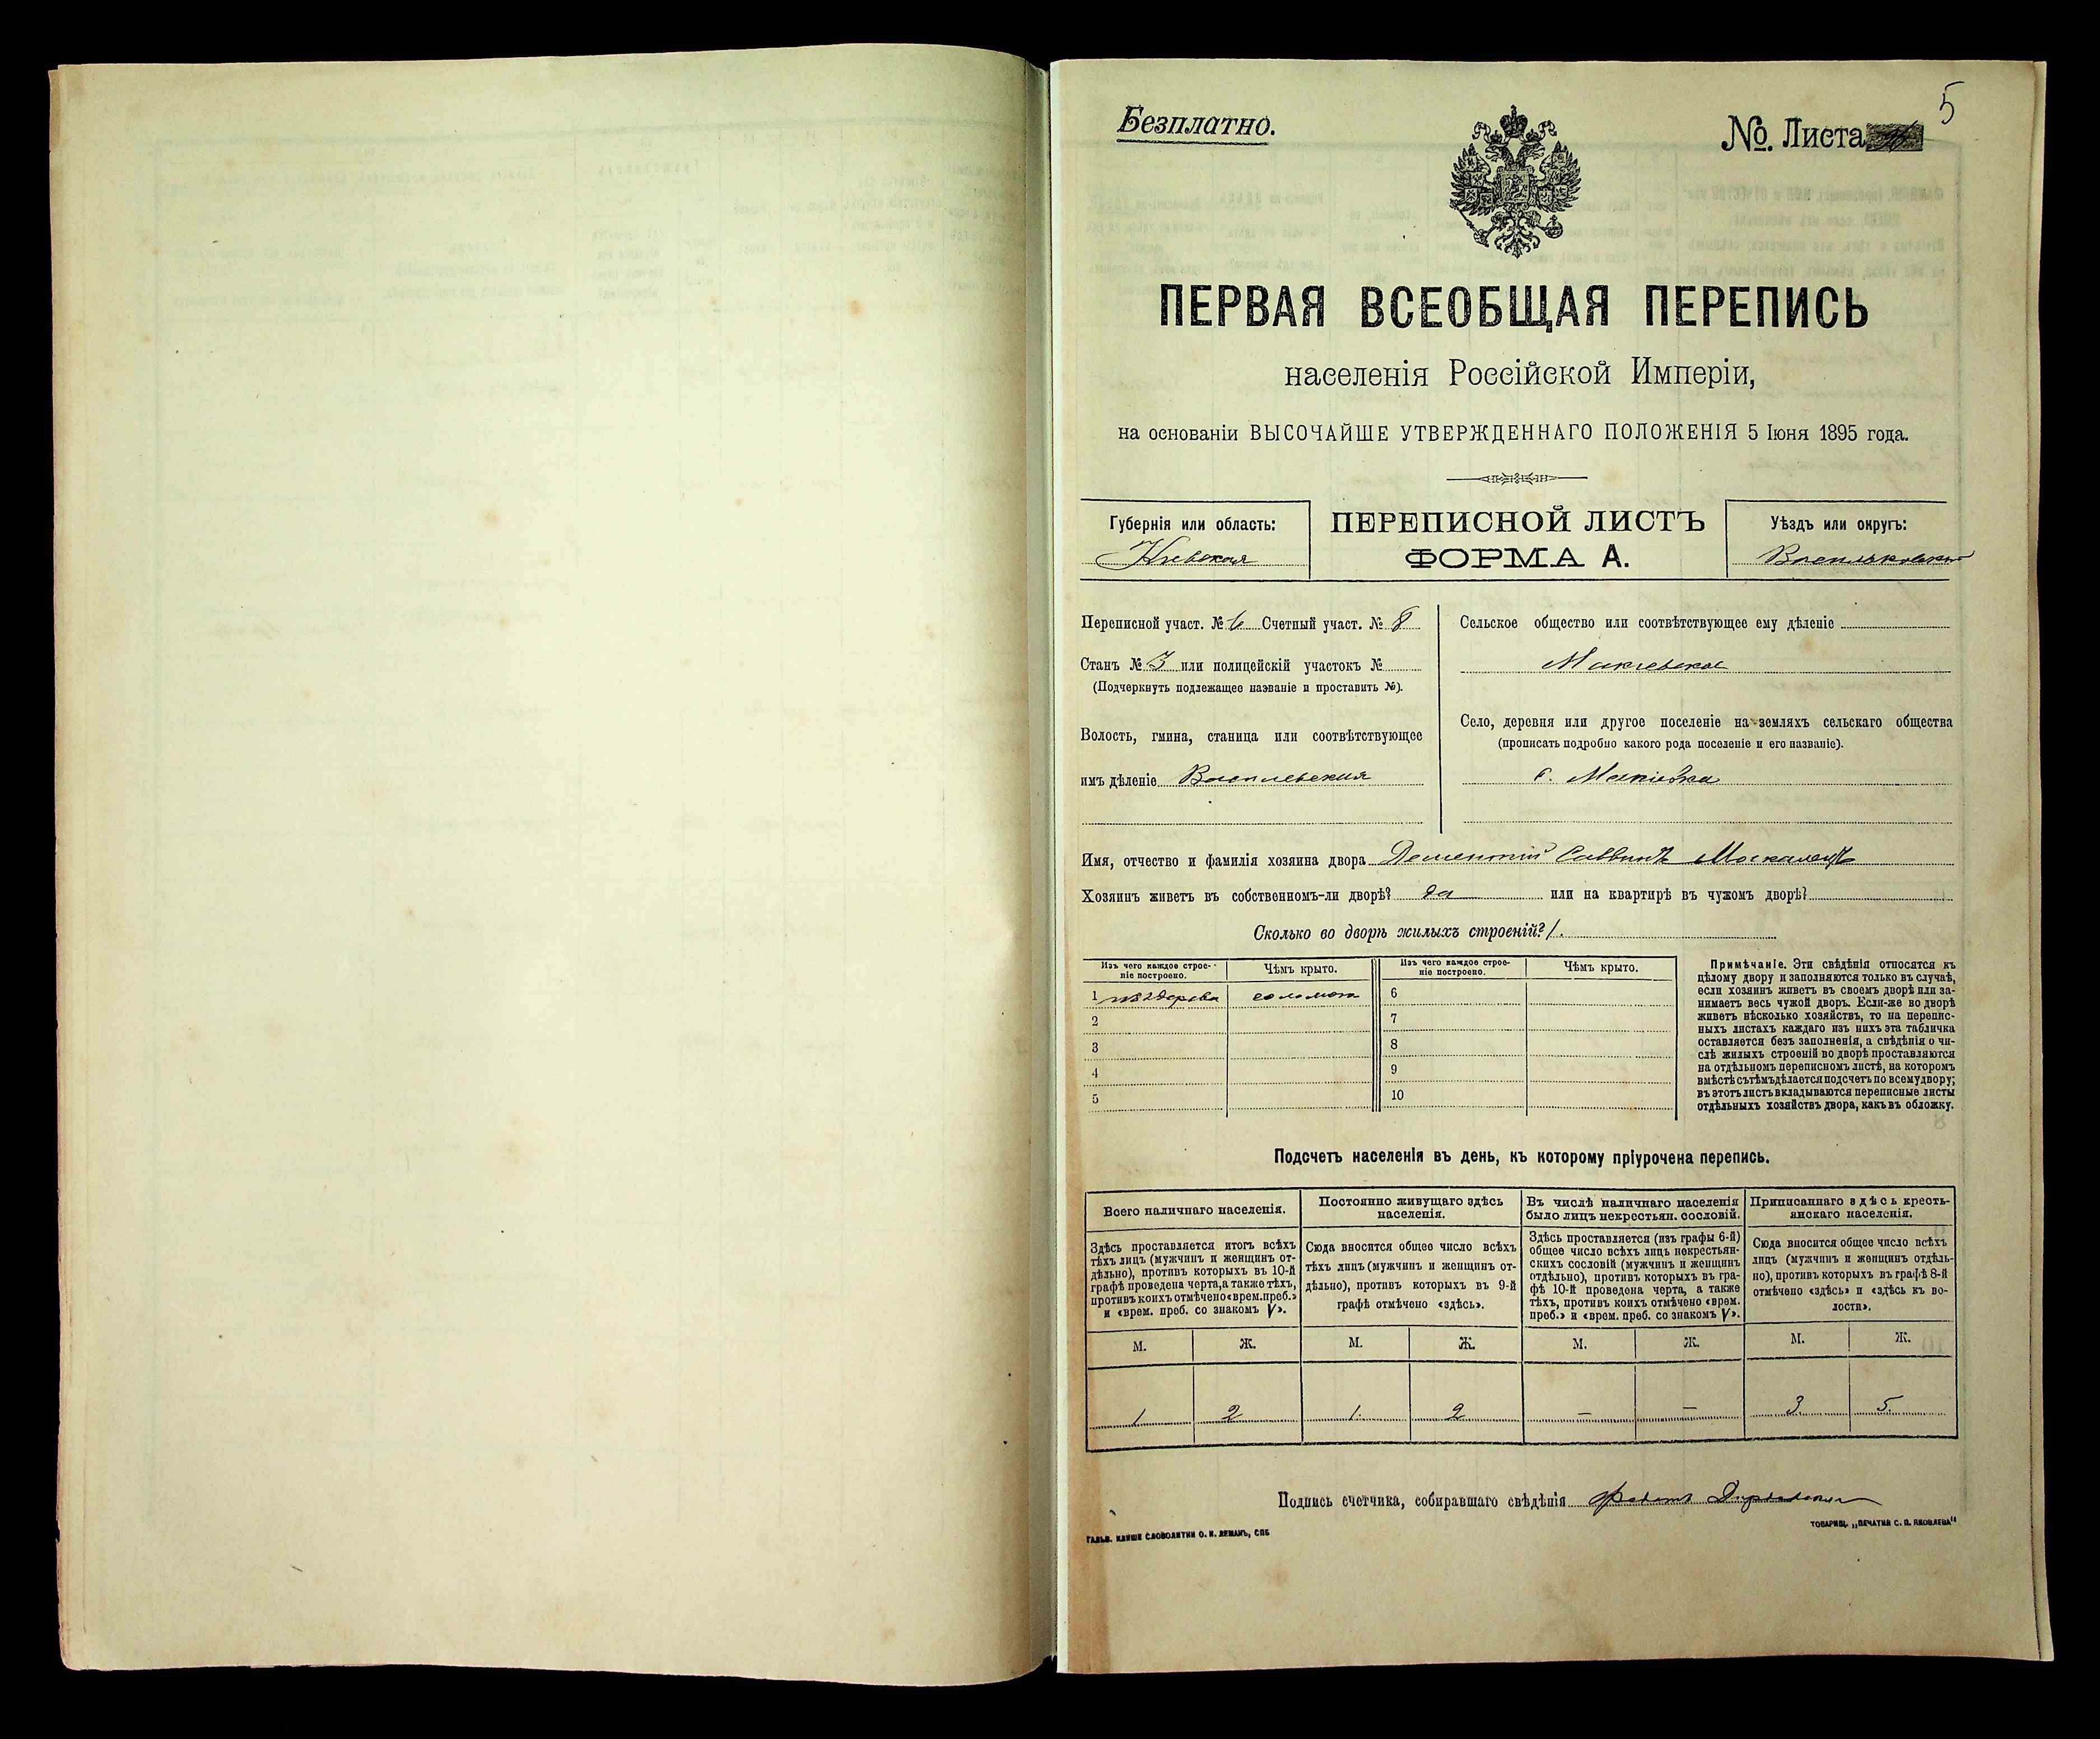 5
Безплатно.
№. Листа
ПЕРВАЯ ВСЕОБЩАЯ ПЕРЕПИСЬ
населенія Россійской Имперіи,
на основаніи ВЫСОЧАЙШЕ УТВЕРЖДЕННАГО ПОЛОЖЕНІЯ 5 Іюня 1895 года.
Губернія или область:
Кіевская
ПЕРЕПИСНОЙ ЛИСТЪ
ФОРМА А.
Уѣздъ или округъ:
Васильковскій
Переписной участ. № 6 Счетный участ. № 8
Станъ № 3 или полицейскій участокъ №
(Подчеркнуть подлежащее названіе и проставить №).
Волость, гмина, станица или соотвѣтствующее
имъ дѣленіе
Сельское общество или соотвѣтствующее ему дѣленіе
Макіевское
Село, деревня или другое поселеніе на земляхъ сельскаго общества
(прописать подробно какого рода поселеніе и его названіе).
с. Макіевка
Имя, отчество и фамилія хозяина двора Дементій Саввинъ Москалецъ
Хозяинъ живетъ въ собственномъ-ли дворѣ? да или на квартирѣ въ чужомъ дворѣ?
Сколько во дворѣ жилыхъ строеній? 1.
Изъ чего каждое строе-
ніе построено.
Чѣмъ крыто.
Изъ чего каждое строе-
ніе построено.
Чѣмъ крыто.
1 изъ дерева соломой 6
2 7
3 8
4 9
5 10
Примѣчаніе. Эти свѣдѣнія относятся къ
цѣлому двору и заполняются только въ случаѣ,
если хозяинъ живетъ въ своемъ дворѣ или за-
нимаетъ весь чужой дворъ. Если-же во дворѣ
живетъ нѣсколько хозяйствъ, то на перепис-
ныхъ листахъ каждаго изъ нихъ эта табличка
оставляется безъ заполненія, а свѣдѣнія о чи-
слѣ жилыхъ строеній во дворѣ проставляются
на отдѣльномъ переписномъ листѣ, на которомъ
вмѣстѣ съ тѣмъ дѣлается подсчетъ по всему двору;
въ этотъ листъ вкладываются переписные листы
отдѣльныхъ хозяйствъ двора, какъ въ обложку.
Подсчетъ населенія въ день, къ которому пріурочена перепись.
Всего наличнаго населенія.
Постоянно живущаго здѣсь
населенія.
Въ числѣ наличнаго населенія
было лицъ некрестьян. сословій.
Приписаннаго здѣсь кресть-
янскаго населенія.
Здѣсь проставляется итогъ всѣхъ
тѣхъ лицъ (мужчинъ и женщинъ от-
дѣльно), противъ которыхъ въ 10-й
графѣ проведена черта, а также тѣхъ,
противъ коихъ отмѣчено «врем. преб.»
и «врем. преб. со знакомъ V».
Сюда вносится общее число всѣхъ
тѣхъ лицъ (мужчинъ и женщинъ от-
дѣльно), противъ которыхъ въ 9-й
графѣ отмѣчено «здѣсь».
Здѣсь проставляется (изъ графы 6-й)
общее число всѣхъ лицъ некрестьян-
скихъ сословій (мужчинъ и женщинъ
отдѣльно), противъ которыхъ въ гра-
фѣ 10-й проведена черта, а также
тѣхъ, противъ коихъ отмѣчено «врем.
преб.» и «врем. преб. со знакомъ V».
Сюда вносится общее число всѣхъ
лицъ (мужчинъ и женщинъ отдѣль-
но), противъ которыхъ въ графѣ 8-й
отмѣчено «здѣсь» и «здѣсь къ во-
лости».
М. Ж. М. Ж. М. Ж. М. Ж.
1 2 1. 2 — — 3 5.
Подпись счетчика, собиравшаго свѣдѣнія
ГАЛЬВ. КЛИШЕ СЛОВОЛИТНИ О. И. ЛЕМАНЪ, СПБ
ТОВАРИЩ. „ПЕЧАТНЯ С. П. ЯКОВЛЕВА"